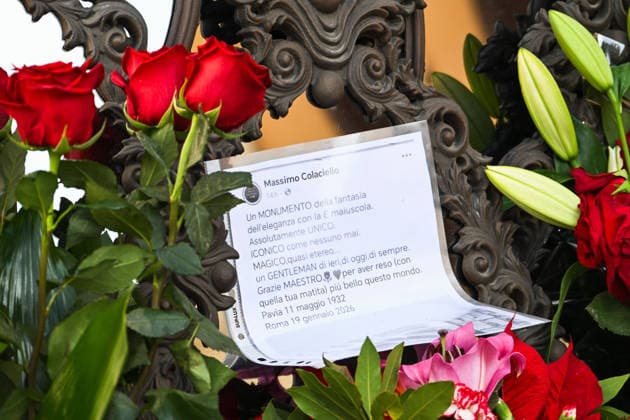 Massimo Colaciello
Un MONUMENTO della fantasia
dell'eleganza con la E maiuscola.
Assolutamente UNICO.
ICONICO come nessuno mai.
MAGICO,quasi etereo...
un GENTLEMAN di ieri,di oggi,di sempre.
Grazie MAESTRO🌹🖤per aver reso (con
quella tua matita) più bello questo mondo.
Pavia 11 maggio 1932
Roma 19 gennaio 2026